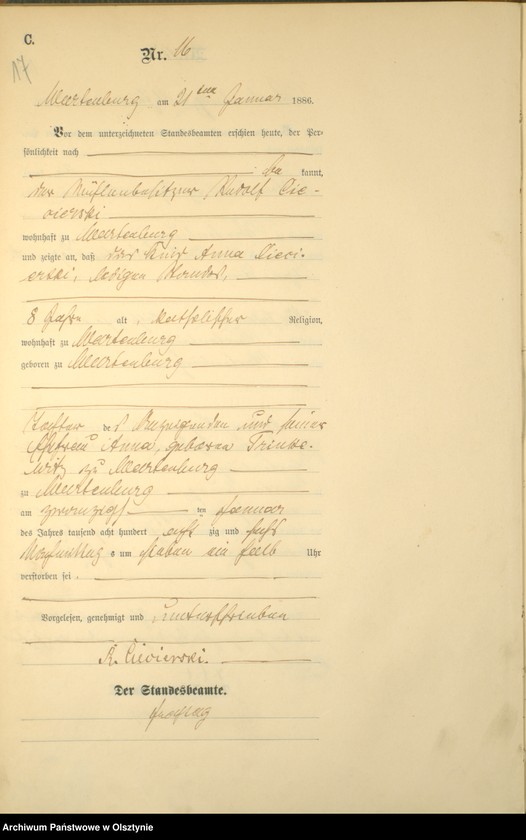 C.
17
Nr. 16
Wartenburg am 21 ten Januar 1886.
Vor dem unterzeichneten Standesbeamten erschien heute, der Per-
sönlichkeit nach
be kannt,
der Mühlenbesitzer Rudolf Cie-
wohnhaft zu Wartenburg
und zeigte an, daß das Kind Anna
ledigen Standes,
8 Jahre alt, katholischer Religion,
wohnhaft zu Wartenburg
geboren zu Wartenburg
Tochter des Anzeigenden und seiner
Ehefrau Anna, geborene
zu Wartenburg
zu Wartenburg
am zwanzigsten Januar
des Jahres tausend acht hundert acht zig und sechs
Nachmittags um sieben ein halb Uhr
verstorben sei.
Vorgelesen, genehmigt und unterschrieben
R.
Der Standesbeamte.
Archiwum Państwowe w Olsztynie